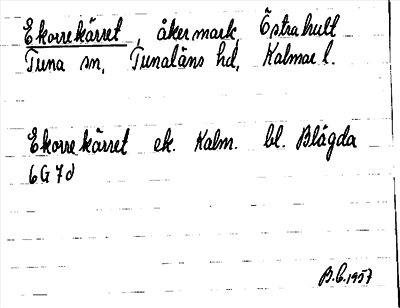 Ekorrekärret, åkermark, Östrahult
Tuna sn, Tunaläns hd, Kalmar l.
Ekorrekärret ek. Kalm. bl. Blågda
6G7d
B.C.1957